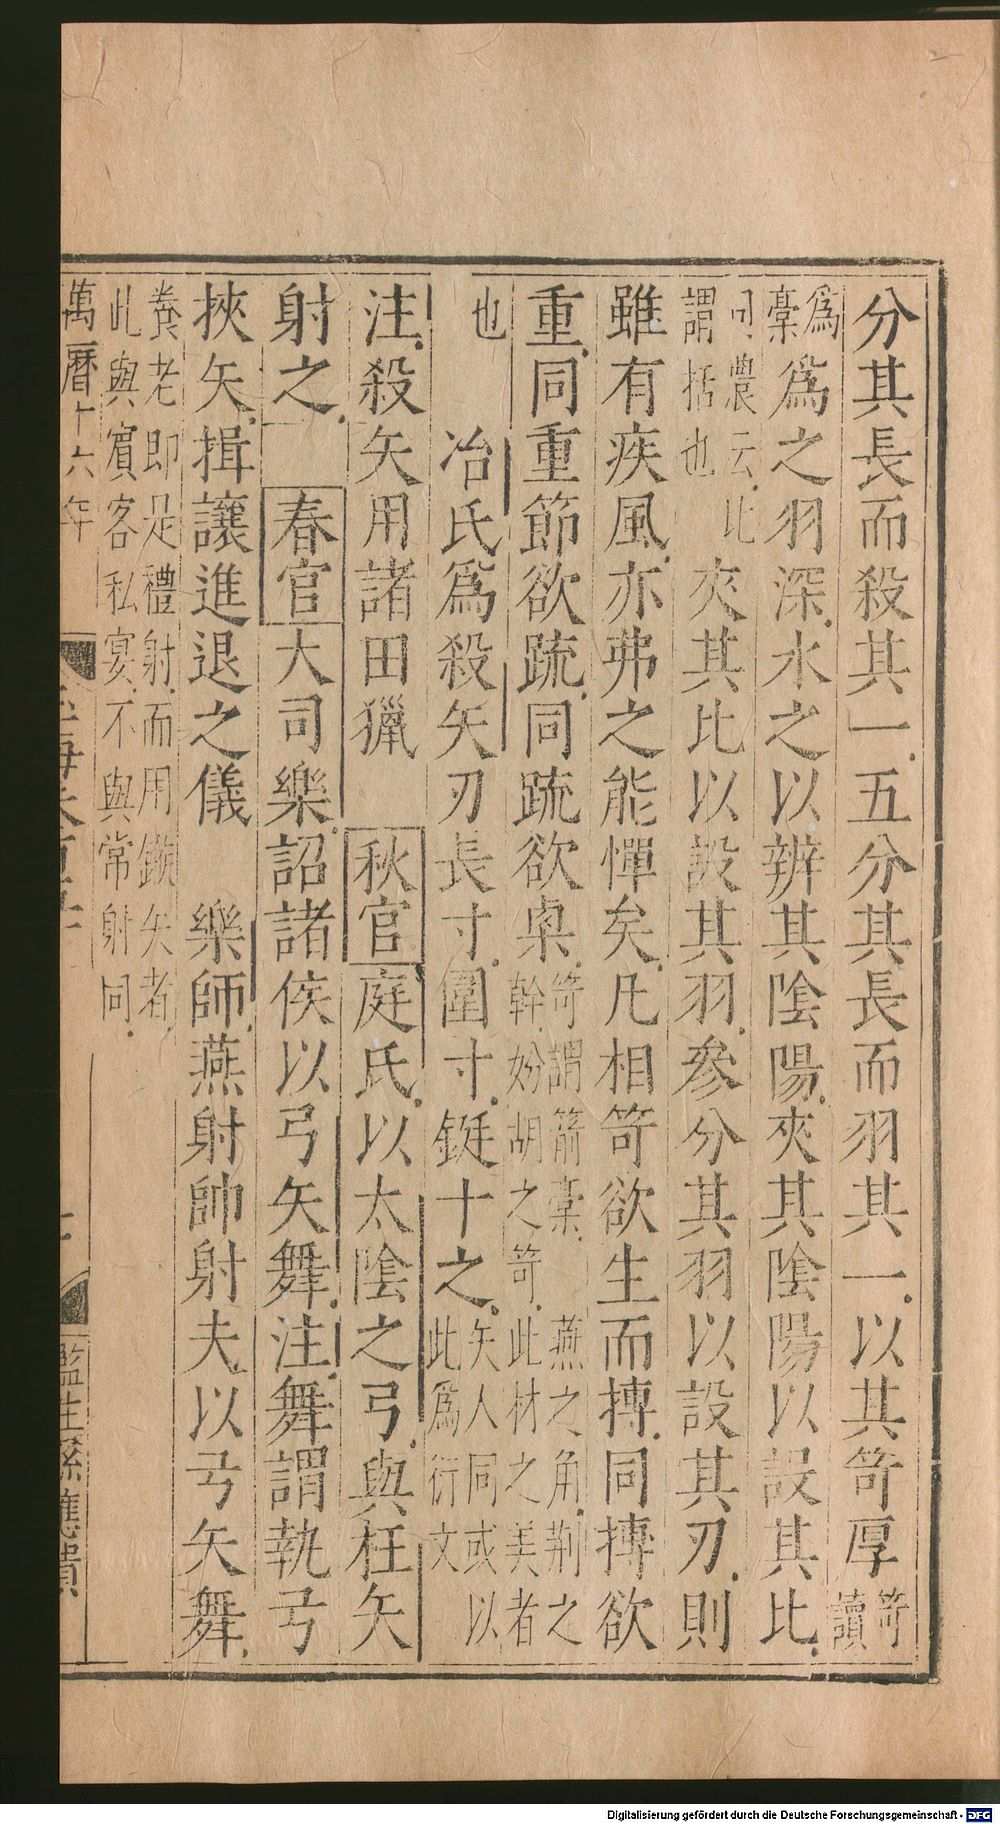 分其長而殺其一五分其長而羽其一以其笴厚笴讀
為稾為之羽深水之以辨其陰陽夾其陰陽以設其比
司農云此謂括也夾其比以設其羽參分其羽以設其刃則
雖有疾風亦弗之能憚矣凡相笴欲生而摶同摶欲
重同重節欲疏同疏欲㮚笴謂箭稾燕之角荆之幹妢胡之笴此材之美者
也 冶氏為殺矢刃長寸圍寸鋌十之矢人同或以此爲衍文
注殺矢用諸田獵 秋官庭氏以太陰之弓與枉矢
射之 春官大司樂詔諸侯以弓矢舞注舞謂執弓
挾矢揖讓進退之儀 樂師燕射帥射夫以弓矢舞
養老即是禮射而用鏃矢者此與賓客私宴不與常射同
萬曆十六年
監生孫應
Digitalisierung gefördert durch die Deutsche Forschungsgemeinschaft - DFG